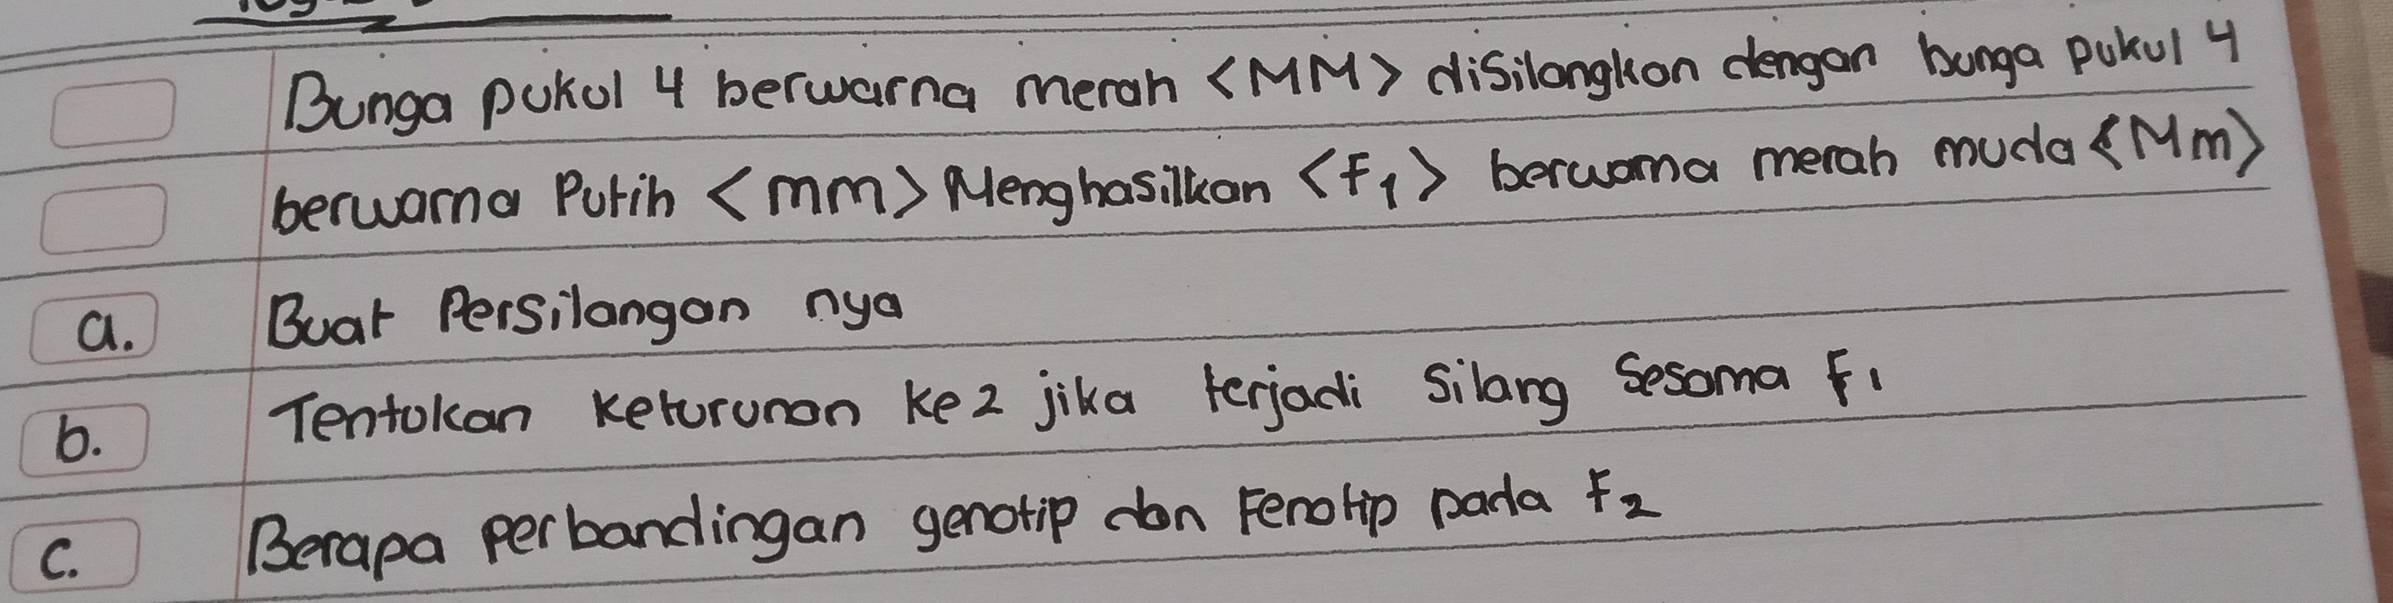 Bunga pukul 4 berwarna merah <MM> disilangkan dengan bunga pukul 4
berwarna Putih <mm> Menghasilkan <F1> berwarna merah muda <Mm>
a. Buat Persilangan nya
b. Tentukan keturunan ke 2 jika terjadi silang sesama F1
c. Berapa perbandingan genotip dan Fenotip pada F2